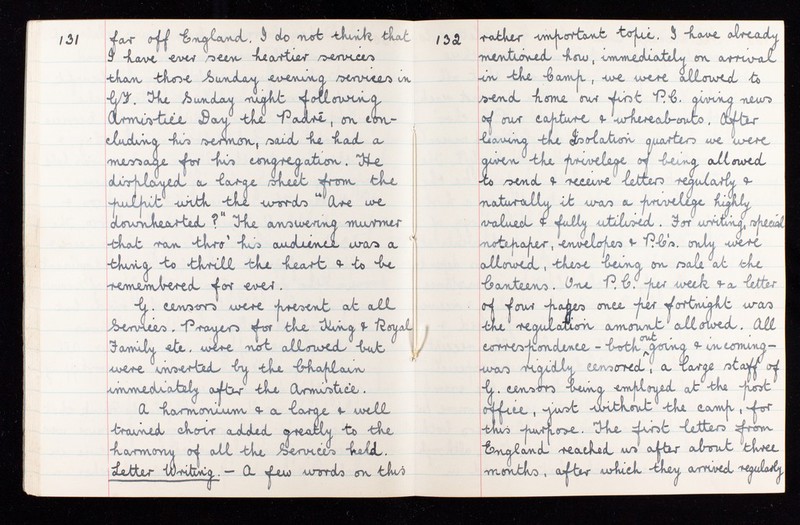 131
far off England. I do not think that
I have ever seen heartier services
than those Sunday evening services in
G/F. The Sunday night following
Armistice Day the Padré, on con-
cluding his sermon, said he had a
message for his congregation. He
displayed a large sheet from the
pulpit with the words "Are we
downhearted?" The answering murmer
that ran thro' his audience was a
thing to thrill the heart & to be
remembered for ever.
G. censors were present at all
Services. Prayers for the King & Royal
Family etc. were not allowed but
were inserted by the Chaplain
immediately after the Armistice.
A harmonium & a large & well
trained choir added greatly to the
harmony of all the Services held.
Letter Writing. — A few words on this
132
rather important topic. I have already
mentioned how, immediately on arrival
in the Camp, we were allowed to
send home our first P.C. giving news
of our capture & whereabouts. After
leaving the Isolation quarters we were
given the privelege of being allowed
to send & receive letters regularly &
naturally it was a privelege highly
valued & fully utilised. For writing, special
notepaper, envelopes & P.C's. only were
allowed, these being on sale at the
Canteens. One P.C. per week & a letter
of four pages once per fortnight was
the regulation amount allowed. All
correspondence - both outgoing & incoming -
was rigidly censored, a large staff of
G. censors being employed at the post
office, just without the camp, for
this purpose. The first letters from
England reached us after about three
months, after which they arrived regularly